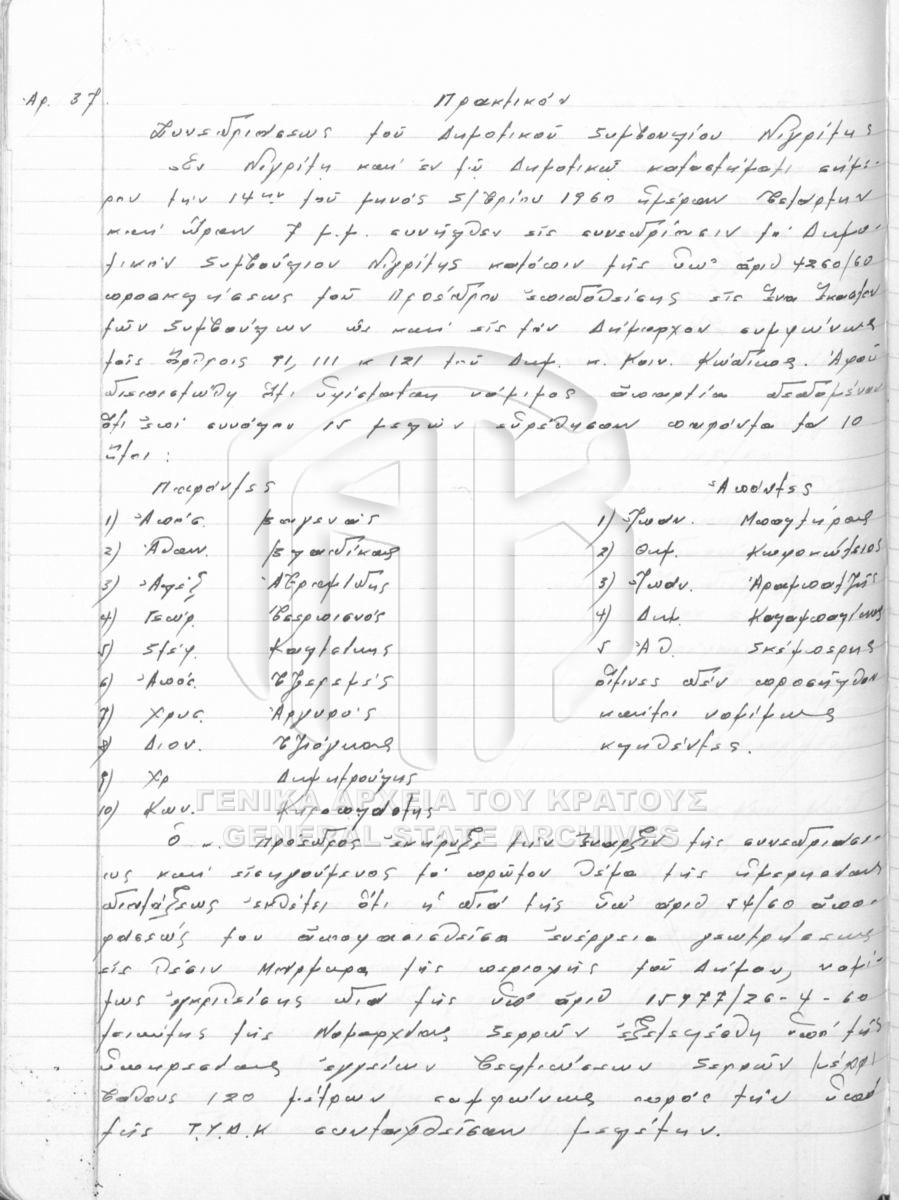 Αρ. 37
Πρακτικόν
Συνεδριάσεως τοῦ Δημοτικοῦ Συμβουλίου Νιγρίτης
Ἐν Νιγρίτῃ καὶ ἐν τῷ Δημοτικῷ καταστήματι σήμε-
ρον τὴν 14ην τοῦ μηνός 5/βρίου 1960 ἡμέραν Τετάρτην
καὶ ὥραν 7 μ.μ. συνῆλθεν εἰς συνεδρίασιν τὸ Δημο-
τικὸν Συμβούλιον Νιγρίτης κατόπιν τῆς ὑπ' ἀριθ 4260/60
προσκλήσεως τοῦ Προέδρου ἐπιδοθείσης εἰς ἕνα ἕκαστον
τῶν Συμβούλων ὡς καὶ εἰς τὸν Δήμαρχον συμφώνως
τοῖς ἄρθροις 91, 111 κ 121 τοῦ Δημ. κ. Κοιν. Κώδικος. Ἀφοῦ
διεπιστώθη ὅτι ὑφίσταται νόμιμος ἀπαρτία δεδομένου
ὅτι ἐπὶ συνόλου 15 μελῶν εὑρέθησαν παρόντα τα 10
ἤτοι :
Παρόντες
1) Ἀπόσ. Βαγενάς
2) Ἀθαν. Βλαχδίκας
3) Ἀλέξ Ἀβραμίδης
4) Γεώρ. Τερπισνός
5) Στέφ. Καλτσίκης
6) Ἀπόσ. Τζερεμές
7) Χρυσ. Ἀργυρός
8) Διον. Τζιόγκας
9) Χρ Δημητρούλης
10) Κων. Κηροπλάστης
Ἀπόντες
1) Ἰωάν. Μπαλτήρας
2) Θημ.
3) Ἰωάν. Ἀραμπατζῆς
4) Δημ. Καλαμπαλίκης
5 Ἀθ. Σκέμπερης
οἵτινες δέν προσῆλθον
καίτοι νομίμως
κληθέντες.
Ὁ κ. Πρόεδρος ἐκήρυξε τὴν ἔναρξιν τῆς συνεδριάσε-
ως καὶ εἰσηγούμενος τὸ πρῶτον θέμα τῆς ἡμερησίας
διατάξεως ἐκθέτει ὅτι ἡ διά τῆς ὑπ' ἀριθ 54/60 ἀπο-
φάσεώς του ἀποφασισθεῖσα ἐνέργεια γεωτρήσεως
εἰς θέσιν Μάρμαρα τῆς περιοχῆς τοῦ Δήμου, νομί-
μως ἐγκριθείσης διά τῆς ὑπ' ἀριθ 15977/26-4-60
τοιαύτης τῆς Νομαρχίας Σερρῶν ἐξετελέσθη ὑπό τῆς
ὑπηρεσίας ἐγγείων βελτιώσεων Σερρῶν μέχρι
βάθους 120 μέτρων συμφώνως πρός τὴν ὑπό
τῆς Τ.Υ.Δ.Κ συνταχθεῖσαν μελέτην.
ΓΕΝΙΚΑ ΑΡΧΕΙΑ ΤΟΥ ΚΡΑΤΟΥΣ
GENERAL STATE ARCHIVES